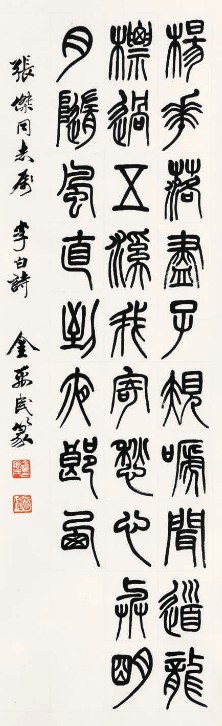 楊華落盡子規嗁聞道龍
標過五溪我寄愁心與明
月隨風直到夜郎西
張傑同志屬 李白詩 金禹民篆